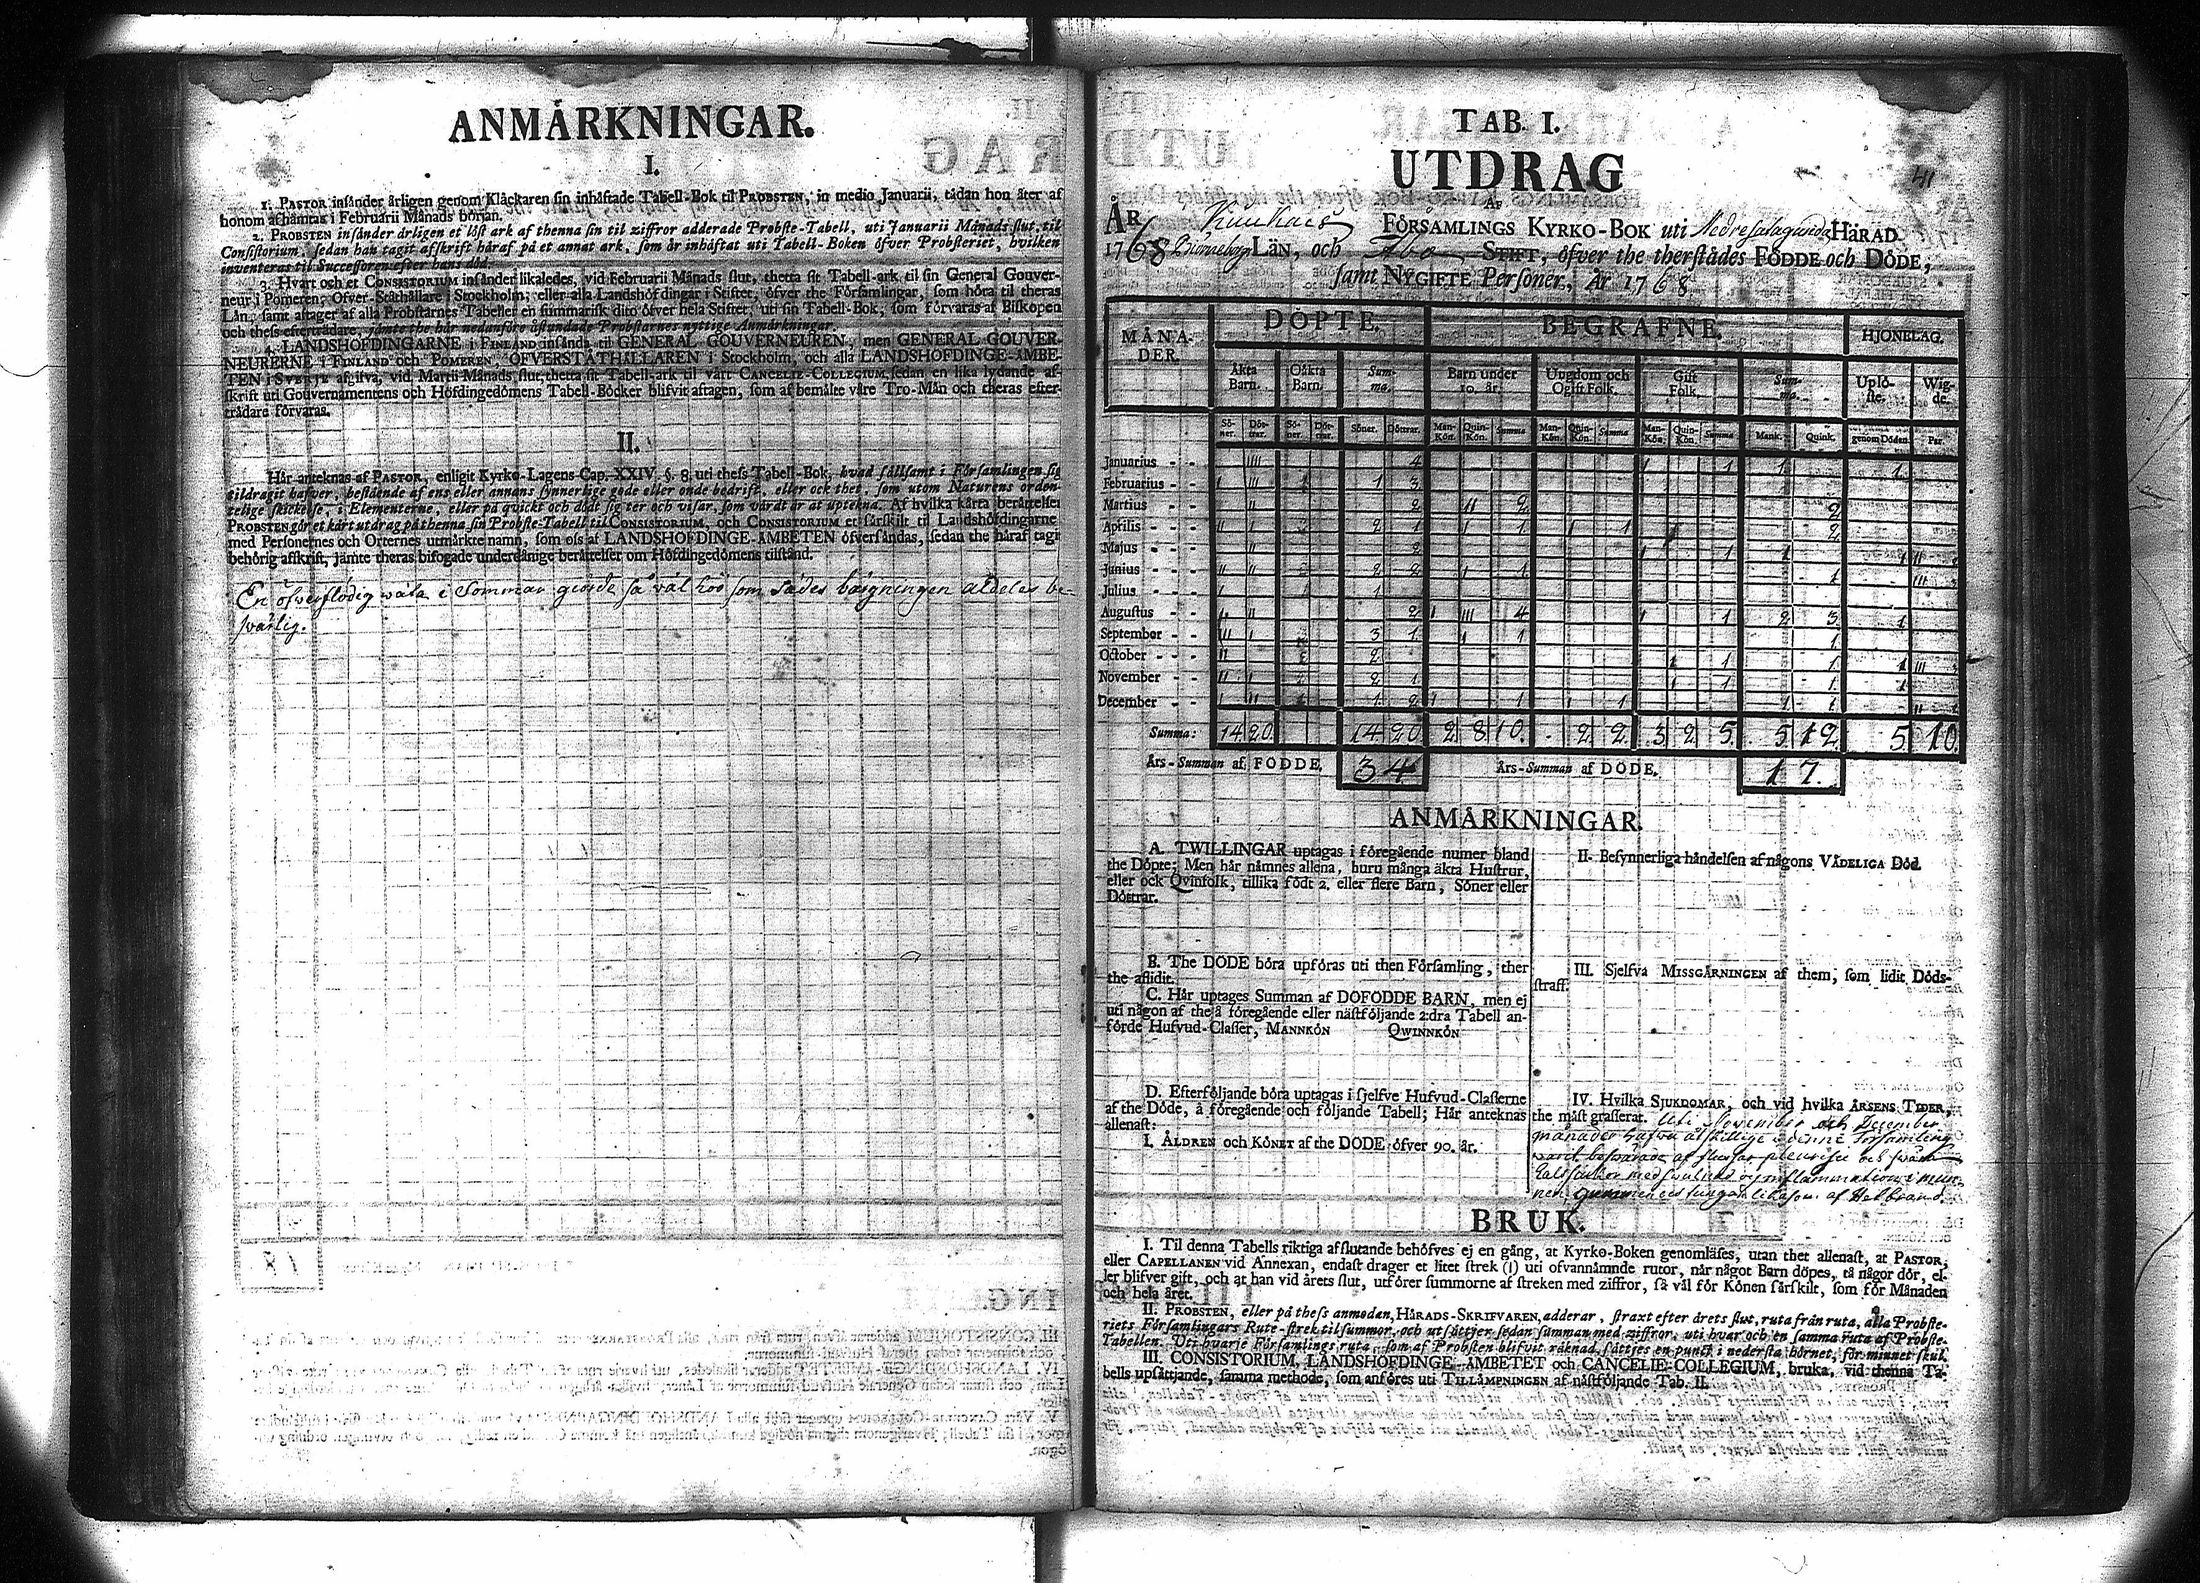 ANMÄRKNINGAR.
I.
1. PASTOR insänder årligen genom Klåckaren sin inhäftade Tabell-Bok til PROBSTEN, in medio Januarii, tädan hon åter af
honom afhämtas i Februarii Månads början.
2. PROBSTEN insänder årligen et löst ark af thenna sin til ziffror adderade Probste-Tabell, uti Januarii Månads slut, til
Consistorium, sedan han tagit afskrift häraf på et annat ark, som är inhäftat uti Tabell-Boken öfver Probsteriet, hvilken
inventeras til Successoren efter hans död.
3. Hvart och et CONSISTORIUM insänder likaledes, vid Februarii Månads slut, thetta sit Tabell-ark til sin General Gouver-
neur i Pomeren, Öfver-Ståthållare i Stockholm, eller alla Landshöfdingar i Stiftet, öfver the Församlingar, som höra til theras
Län, samt aftager af alla Probstarnes Tabeller en summarisk dito öfver hela Stiftet, uti sin Tabell-Bok, som förvaras af Biskopen
och thess efterträdare, jämte the här nedanföre åstundade Probstarnes nyttige Anmärkningar.
4. LANDSHÖFDINGARNE i FINLAND insända til GENERAL GOUVERNEUREN, men GENERAL GOUVER-
NEURERNE i FINLAND och POMEREN, ÖFVERSTÅTHÅLLAREN i Stockholm, och alla LANDSHÖFDINGE-ÄMBE-
TEN i SVERJE afgifva, vid Martii Månads slut, thetta sit Tabell-ark til vårt CANCELIE-COLLEGIUM, sedan en lika lydande af-
skrift uti Gouvernamentens och Höfdingedömens Tabell-Böcker blifvit aftagen, som af bemälte våre Tro-Män och theras efter-
trädare förvaras.
II.
Här anteknas af PASTOR, enligit Kyrko-Lagens Cap. XXIV. §. 8. uti thess Tabell-Bok, hvad sällsamt i Församlingen sig
tildragit hafver, bestående af ens eller annans synnerlige gode eller onde bedrift, eller ock thet, som utom Naturens orden-
telige skickelse, i Elementerne, eller på qvickt och dödt sig ter och visar, som värdt är at uptekna. Af hvilka kårta berättelser
PROBSTEN gör et kårt utdrag på thenna sin Probste-Tabell til CONSISTORIUM, och CONSISTORIUM et särskilt til Landshöfdingarne
med Personernes och Orternes utmärkte namn, som oss af LANDSHÖFDINGE-ÄMBETEN öfversändas, sedan the häraf tagit
behörig afskrift, jämte theras bifogade underdånige berättelser om Höfdingedömens tilstånd.
En öfverflödig wäta i Sommar giorde så väl höö som Sädes bärgningen aldeles be-
swärlig.
TAB. I.
UTDRAG
41
AF
ÅR Kiukais FÖRSAMLINGS KYRKO-BOK uti Nedre Satagunda HÄRAD
1768 Biörneborgs LÄN, och Åbo STIFT, öfver the therstädes FÖDDE och DÖDE,
samt NYGIFTE Personer, År 1768.
MÅNA-DER. DÖPTE. BEGRAFNE. HJONELAG.
Äkta Barn. Oäkta Barn. Summa. Barn under 10. år. Ungdom och Ogift Folk. Gift Folk. Summa. Uplöste. Wigde.
Söner. Döttrar. Söner. Döttrar. Söner. Döttrar. Man-Kön. Quin-Kön. Summa Man-Kön. Quin-Kön. Summa Man-Kön. Quin-Kön. Summa Mank. Quink. genom Döden. Par.
Januarius - - IIII 4 1 1 1 1
Februarius - - I III 1 3
Martius - - II 2 II 2 2
Aprilis - -
Majus - - II 2
Junius - - II II 2 2 I 1 1 III
Julius - - I 1
Augustus - - II 2 I III 4 I 1 2 3 1
September - - III I 3 1 I 1 1
October - - II 2 1 1 1 III
November - - II I 2 1 1 1 1
December - - I II 1 2 I 1 1 1 1 1 II
Summa: 14 20 14 20 2 8 10. 2 2 3 2 5 5 12 5 10
Års-Summan af FÖDDE. 34 Års-Summan af DÖDE. 17.
ANMÄRKNINGAR.
A. TWILLINGAR uptagas i föregående numer bland
the Döpte; Men här nämnes allena, huru många äkta Hustrur,
eller ock Qvinfolk, tillika födt 2. eller flere Barn, Söner eller
Döttrar.
B. The DÖDE böra upföras uti then Församling, ther
the aflidit.
C. Här uptages Summan af DÖFÖDDE BARN, men ej
uti någon af the å föregående eller nästföljande 2:dra Tabell an-
förde Hufvud-Classer, MANNKÖN QWINNKÖN
D. Efterföljande böra uptagas i sjelfve Hufvud-Classerne
af the Döde, å föregående och följande Tabell; Här anteknas
allenast:
I. ÅLDREN och KÖNET af the DÖDE öfver 90. år.
II. Besynnerliga händelsen af någons VÅDELIGA Död.
III. Sjelfva MISSGÄRNINGEN af them, som lidit Döds-
straff.
IV. Hvilka SJUKDOMAR, och vid hvilka ÅRSENS TIDER,
the mäst grasserat. Uti November och December
månader hafva åtskillige i denne Församling
warit beswärade af flussar pleurisie och swåra
halssiukor med swulnad och inflammation i mun-
nen, gummen och tungan likasom af Helbrand.
BRUK.
I. Til denna Tabells riktiga afslutande behöfves ej en gång, at Kyrko-Boken genomläses, utan thet allenast, at PASTOR,
eller CAPELLANEN vid Annexan, endast drager et litet strek (|) uti ofvannämnde rutor, när något Barn döpes, tå någor dör, el-
ler blifver gift, och at han vid årets slut, utförer summorne af streken med ziffror, så väl för Könen särskilt, som för Månaden
och hela året.
II. PROBSTEN, eller på thess anmodan, HÄRADS-SKRIFVAREN, adderar, straxt efter årets slut, ruta från ruta, alla Probste-
riets Församlingars Rute-strek til summor, och utsättjer sedan summan med ziffror, uti hvar och en samma ruta af Probste-
Tabellen. Uti hvarje Församlings ruta, som af Probsten blifvit räknad, sättjes en punct i nedersta hörnet, för minnet skul.
III. CONSISTORIUM, LANDSHÖFDINGE-ÄMBETET och CANCELIE-COLLEGIUM, bruka, vid thenna Ta-
bells upsättjande, samma methode, som anföres uti TILLÄMPNINGEN af nästföljande Tab. II.